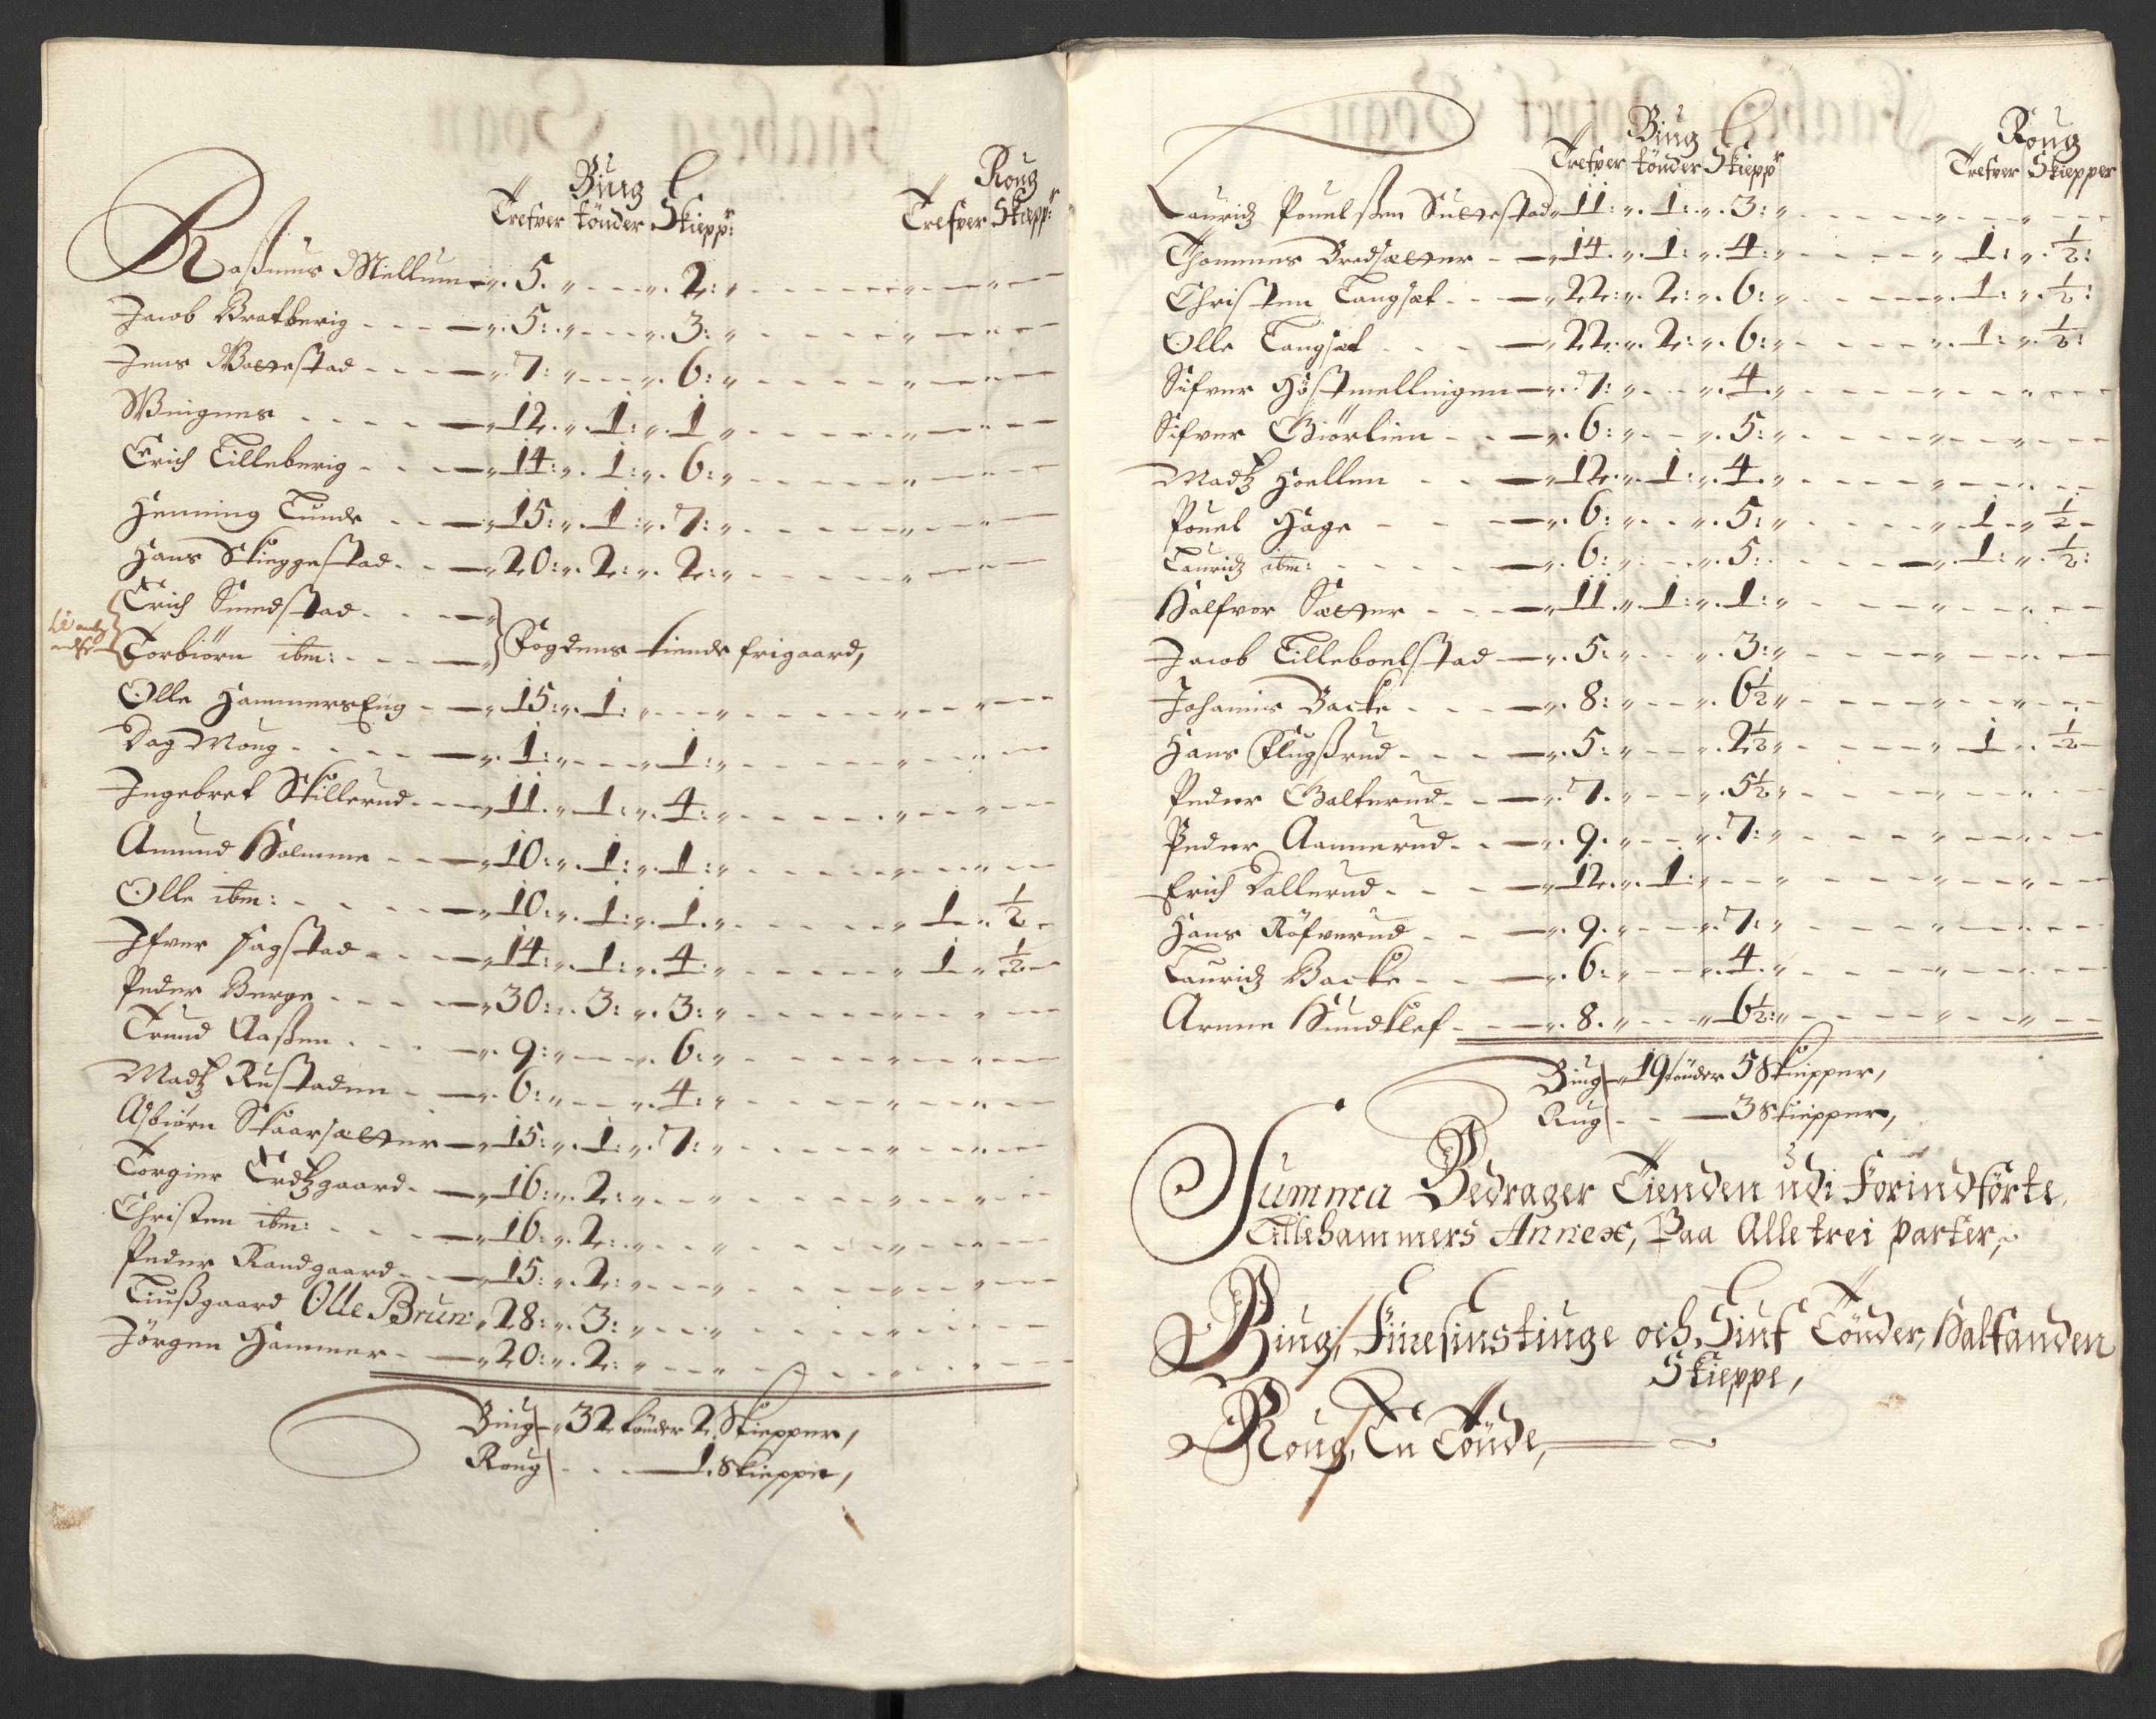 Biug Roug
Trefver tönder Skiepp: Trefver Skiepp:
Rasmus Mellum 5. 2:
Jacob Bratberig 5: 3:
Jens Balestad 7: 6:
Wingnes 12. 1: 1
Erich Lilleberig 14: 1: 6:
Henning Lunde 15: 1: 7:
Hans Skieggestad 20: 2: 2:
Erich Smedstad
Torbiörn ibm: Fogdens tiende frigaard,
Olle HammersEng 15: 1:
Dag Moug 1: 1:
Ingebret Skillerud 11. 1: 4:
Amund Holmme 10: 1: 1:
Olle ibm: 10: 1: 1. 1 ½
Ifver Fagstad 14: 1: 4: 1 ½
Peder Berge 30: 3: 3:
Trund Aassen 9: 6:
Madtz Rustaden 6: 4:
Asbiörn Skaarsætter 15: 1: 7:
Torgier Trdtzgaard 16: 2:
Christen ibm: 16: 2:
Peder Randgaard 15: 2:
Liussgaard Olle Brun: 28: 3:
Jörgen Hammer 20: 2:
Biug 32 tönder 2 Skiepper,
Roug 1 Skieppe,
Biug Roug
Trefver tönder Skiepp Trefver Skiepper
Lauridz Pouelssen Sultestad 11: 1: 3:
Thommes Bredsætter 14. 1: 4: 1: ½:
Christen Langset 22: 2: 6: 1: ½:
Olle Langset 22: 2: 6: 1: ½:
Sifver Höstmellingen 7: 4.
Sifver Giörlien 6: 5:
Madtz Hoellen 12. 1: 4.
Pouel Hage 6: 5: 1 ½
Lauridz ibm: 6: 5: 1: ½:
Halfvor Sætter 11. 1: 1:
Jacob Lilleboelstad 5. 3:
Johannis Backe 8: 6½
Hans Flugssrud 5: 2½ 1 ½
Peder Galterud 7. 5½
Peder Aannerud 9. 7:
Erich Dallerud 12. 1:
Hans Röfverud 9. 7:
Lauridz Backe 6: 4.
Arnne Hundklef 8. 6½:
Biug 19 tönder 5 Skiepper,
Rug 3 Skiepper,
Summa Bedrager Tienden udi Forindförte
Lillehammers Annex, Paa Alle trei parter,
Biug, Fiiresinstiuge och Siuf Tönder, Halfanden
Skieppe,
Roug, En Tönde,